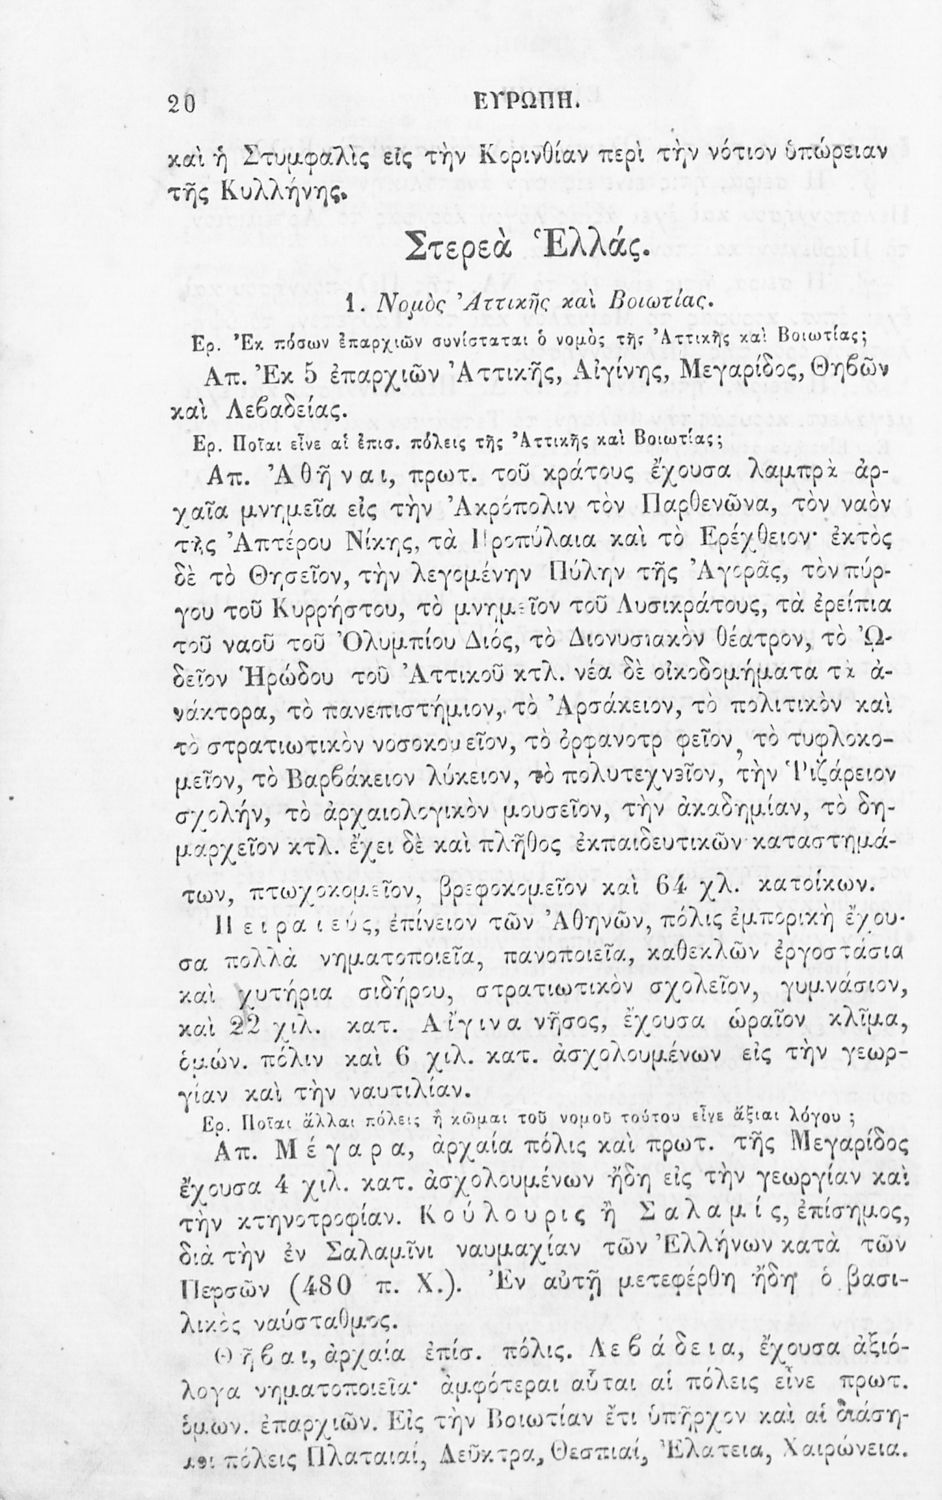 20 ΕΥΡΩΠΗ.
καὶ ἡ Στυμφαλὶς εἰς τὴν Κορινθίαν περὶ τὴν νότιον ὑπώρειαν
τῆς Κυλλήνης.
Στερεὰ Ἑλλάς.
1. Νομὸς Ἀττικῆς καὶ Βοιωτίας.
Ερ. Ἐκ πόσων ἐπαρχιῶν συνίσταται ὁ νομὸς τῆς Ἀττικῆς καὶ Βοιωτίας;
Απ. Ἐκ 5 ἐπαρχιῶν Ἀττικῆς, Αἰγίνης, Μεγαρίδος, Θηβῶν
καὶ Λεβαδείας.
Ερ. Ποῖαι εἶνε αἱ ἐπισ. πόλεις τῆς Ἀττικῆς καὶ Βοιωτίας;
Απ. Ἀθῆναι, πρωτ. τοῦ κράτους ἔχουσα λαμπρὰ ἀρ-
χαῖα μνημεῖα εἰς τὴν Ἀκρόπολιν τὸν Παρθενῶνα, τὸν ναὸν
τῆς Ἀπτέρου Νίκης, τὰ Προπύλαια καὶ τὸ Ερέχθειον· ἐκτὸς
δὲ τὸ Θησεῖον, τὴν λεγομένην Πύλην τῆς Ἀγορᾶς, τὸν πύρ-
γου τοῦ Κυρρήστου, τὸ μνημεῖον τοῦ Λυσικράτους, τὰ ἐρείπια
τοῦ ναοῦ τοῦ Ὀλυμπίου Διός, τὸ Διονυσιακὸν θέατρον, τὸ Ὠ-
δεῖον Ἡρώδου τοῦ Ἀττικοῦ κτλ. νέα δὲ οἰκοδομήματα τὰ ἀ-
νάκτορα, τὸ πανεπιστήμιον, τὸ Ἀρσάκειον, τὸ πολιτικὸν καὶ
τὸ στρατιωτικὸν νοσοκομεῖον, τὸ ὀρφανοτρ φεῖον, τὸ τυφλοκο-
μεῖον, τὸ Βαρβάκειον λύκειον, τὸ πολυτεχνεῖον, τὴν Ῥιζάρειον
σχολήν, τὸ ἀρχαιολογικὸν μουσεῖον, τὴν ἀκαδημίαν, τὸ δη-
μαρχεῖον κτλ. ἔχει δὲ καὶ πλῆθος ἐκπαιδευτικῶν καταστημά-
των, πτωχοκομεῖον, βρεφοκομεῖον καὶ 64 χλ. κατοίκων.
Πειραιεύς, ἐπίνειον τῶν Ἀθηνῶν, πόλις ἐμπορικὴ ἔχου-
σα πολλὰ νηματοποιεῖα, πανοποιεῖα, καθεκλῶν ἐργοστάσια
καὶ χυτήρια σιδήρου, στρατιωτικὸν σχολεῖον, γυμνάσιον,
καὶ 22 χιλ. κατ. Αἴγινα νῆσος, ἔχουσα ὡραῖον κλῖμα,
ὁμών. πόλιν καὶ 6 χιλ. κατ. ἀσχολουμένων εἰς τὴν γεωρ-
γίαν καὶ τὴν ναυτιλίαν.
Ερ. Ποῖαι ἄλλαι πόλεις ἢ κῶμαι τοῦ νομοῦ τούτου εἶνε ἄξιαι λόγου ;
Απ. Μέγαρα, ἀρχαία πόλις καὶ πρωτ. τῆς Μεγαρίδος
ἔχουσα 4 χιλ. κατ. ἀσχολουμένων ἤδη εἰς τὴν γεωργίαν καὶ
τὴν κτηνοτροφίαν. Κούλουρις ἢ Σαλαμίς, ἐπίσημος,
διὰ τὴν ἐν Σαλαμῖνι ναυμαχίαν τῶν Ἑλλήνων κατὰ τῶν
Περσῶν (480 π. Χ.). Ἐν αὐτῇ μετεφέρθη ἤδη ὁ βασι-
λικὸς ναύσταθμος.
Θῆβαι, ἀρχαία ἐπίσ. πόλις. Λεβάδεια, ἔχουσα ἀξιό-
λογα νηματοποιεῖα· ἀμφότεραι αὗται αἱ πόλεις εἶνε πρωτ.
ὁμων. ἐπαρχιῶν. Εἰς τὴν Βοιωτίαν ἔτι ὑπῆρχον καὶ αἱ διάση-
μοι πόλεις Πλαταιαί, Λεῦκτρα, Θεσπιαί, Ἐλάτεια, Χαιρώνεια.